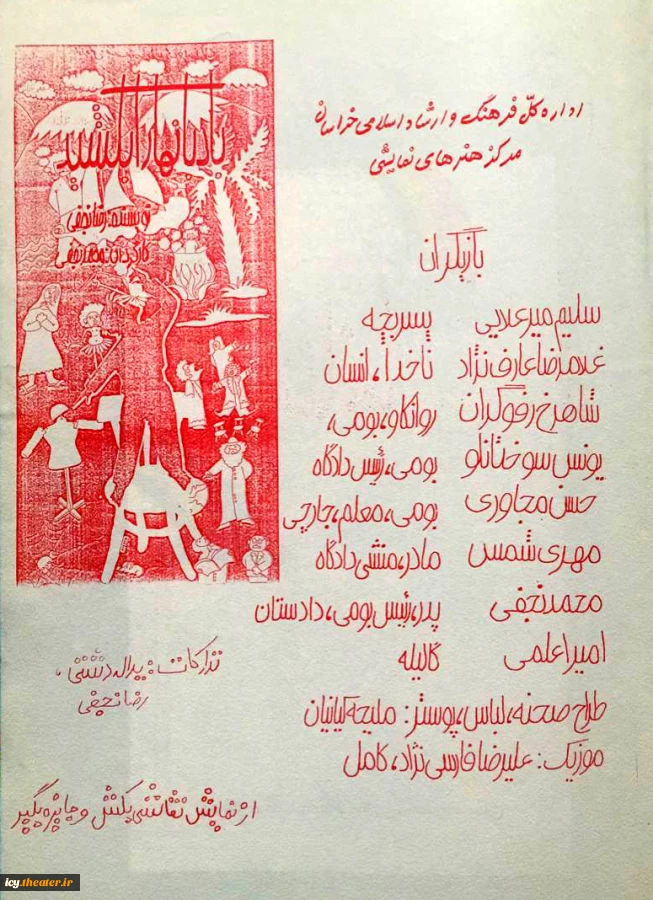 اداره کلّ فرهنگ و ارشاد اسلامی خراسان
مرکز هنرهای نمایشی
بادبانها را بکشید
نویسنده: رضا نجفی
کارگردان: محمد نجفی
بازیگران
سلیم میرعلایی پسربچه
غلامرضا عارف نژاد ناخدا، انسان
شاهرخ رفوگران روانکاو، بومی،
یونس سوختانلو بومی، رئیس دادگاه
حسن مجاوری بومی، معلم، جارچی
مهدی شمس مادر، منشی دادگاه
محمد نجفی پدر، رئیس بومی، دادستان
امیر اعلمی گالیله
طراح صحنه، لباس، پوستر: ملیحه کیانیان
موزیک: علیرضا فارسی نژاد، کامل
تدارکات: یداله دشتی،
رضا نجفی
از نمایش نقاشی بکش و جایزه بگیر
icy.theater.ir